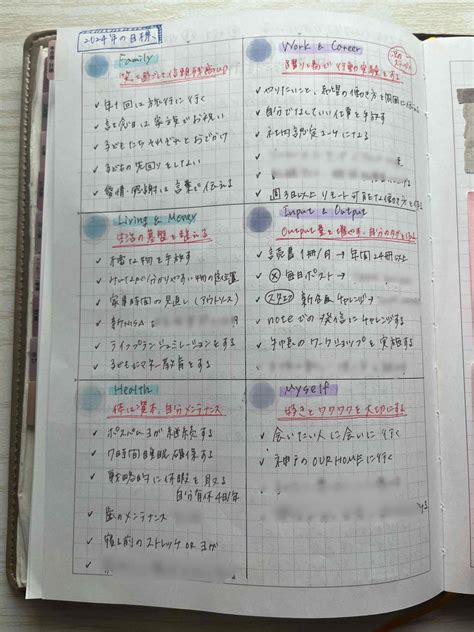 2024年の目標、
Family
年1回は旅行に行く
記念日は家族でお祝い
子どもたちそれぞれとおでかけ
子どもの先回りをしない
愛情・感謝は言葉で伝える
Work & Career
やりたいこと、希望の働き方を周囲に
自分でなくてもいい仕事を手放す
社内認定コーチになる
週3日以上リモート可能な働き方を
Living & Money
生活の基盤を整える
不要な物を手放す
みんなが分かりやすい物の定位置
家事時間の見直し(アウトソース)
新NISA
ライフプランシミュレーションをする
子どもにマネー教育をする
Input & Output
Output量を増やす。自分の
読書 1冊/月 → 年間24冊以上
毎日ポスト →
noteでの発信にチャレンジする
年中のワークショップを実施する
Health
体は資本、自分メンテナンス
7時間睡眠確保する
戦略的に休暇を取る
自分有休4日/年
歯のメンテナンス
寝る前のストレッチ or ヨガ
Myself
好きとワクワクを大切にする
会いたい人に会いに行く
神戸のOURHOMEに行く